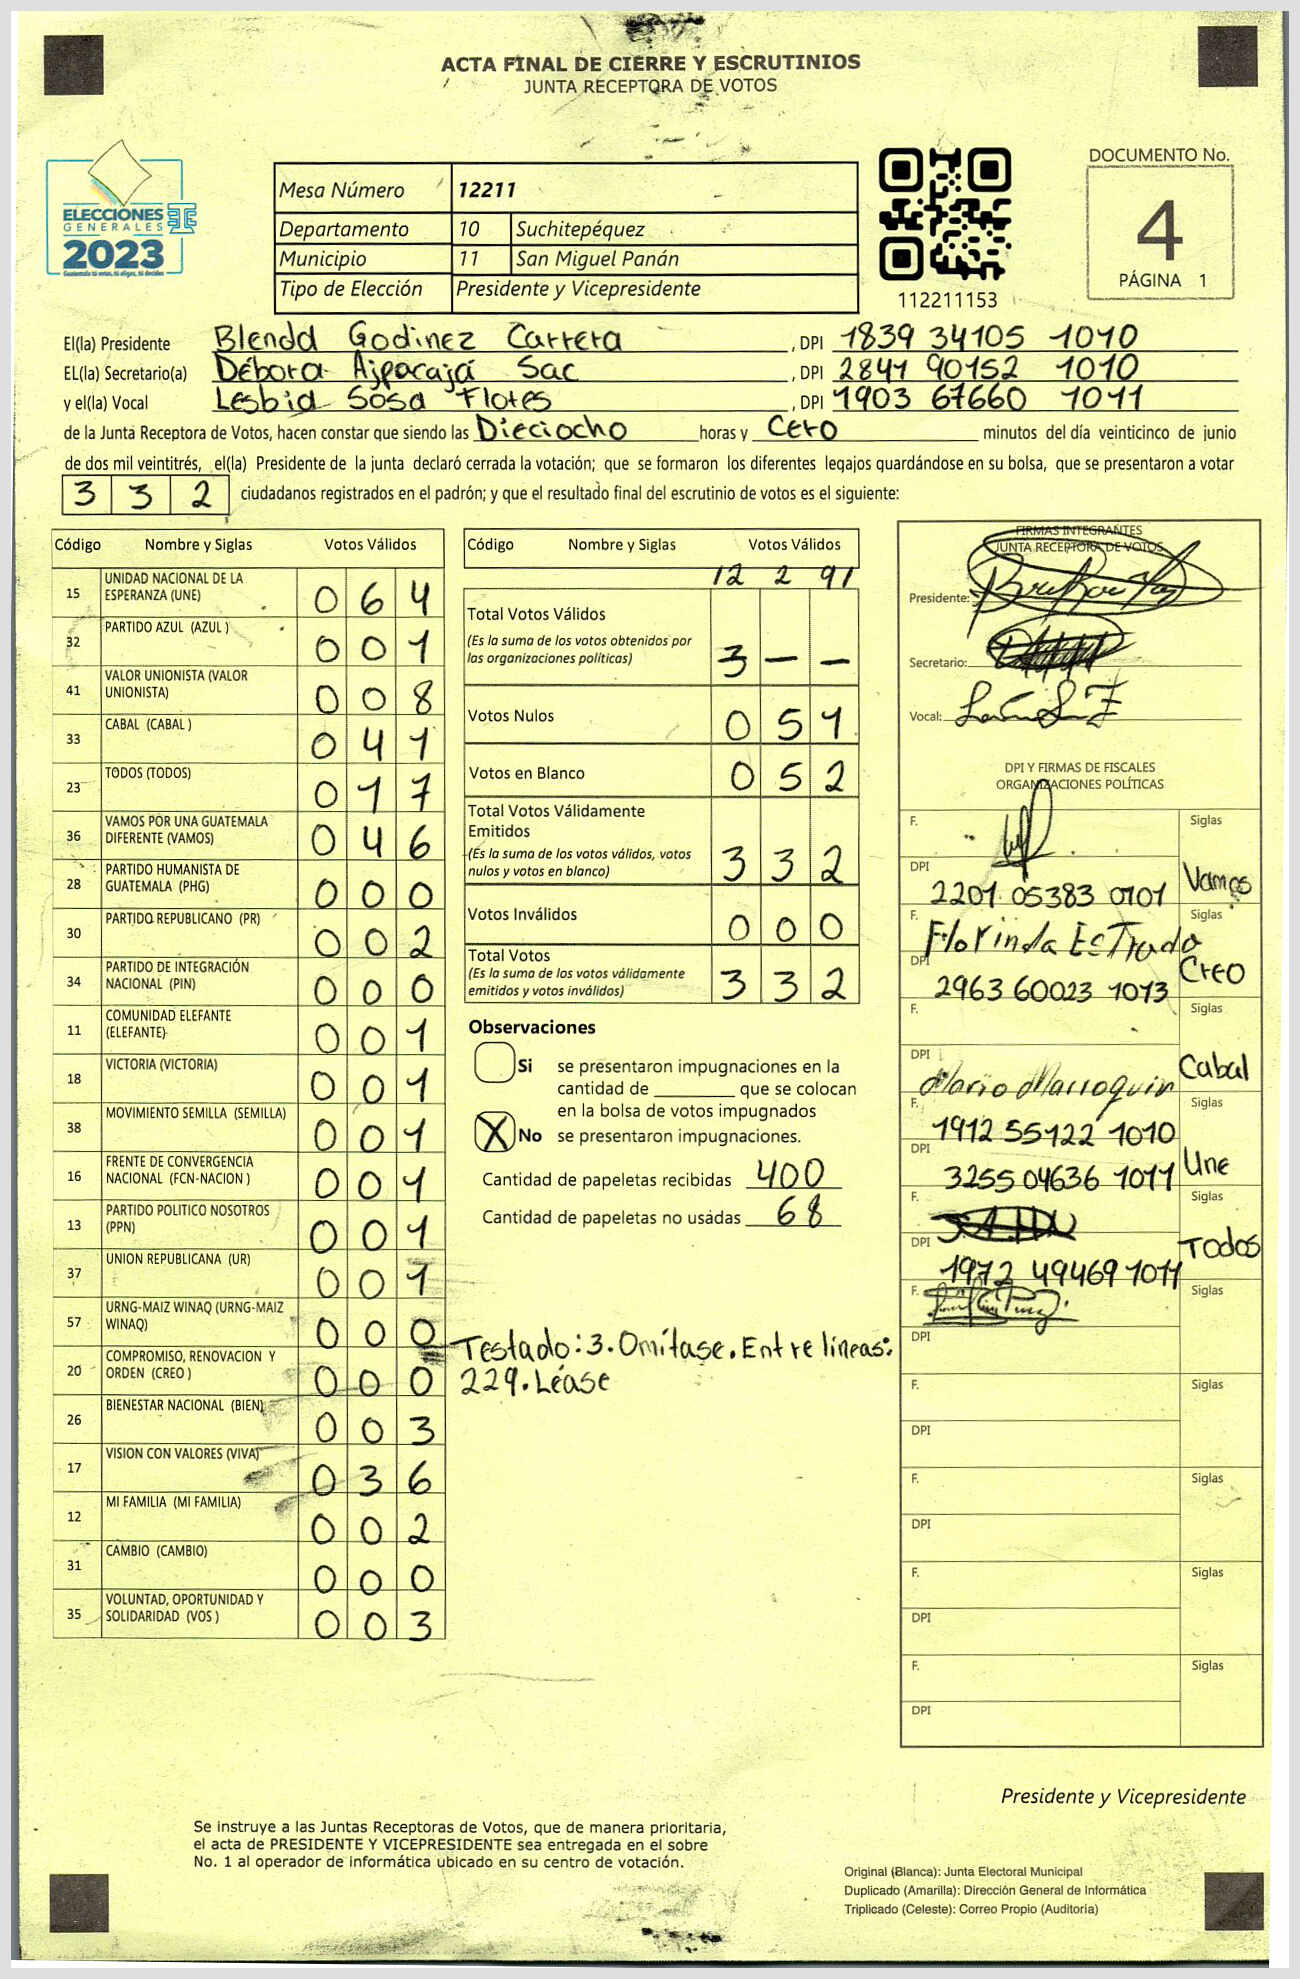 ACTA FINAL DE CIERRE Y ESCRUTINIOS
JUNTA RECEPTORA DE VOTOS
ELECCIONES
GENERALES
2023
Guatemala tú votas, tú eliges, tú decides
Mesa Número 12211
Departamento 10 Suchitepéquez
Municipio 11 San Miguel Panán
Tipo de Elección Presidente y Vicepresidente
112211153
DOCUMENTO No.
4
PÁGINA 1
El(la) Presidente Blenda Godinez Carrera, DPI 1839 34105 1010
EL(la) Secretario(a) Débora Ajpacajá Sac, DPI 2841 90152 1010
y el(la) Vocal Lesbia Sosa Flores, DPI 1903 67660 1011
de la Junta Receptora de Votos, hacen constar que siendo las Dieciocho horas y Cero minutos del día veinticinco de junio
de dos mil veintitrés, el(la) Presidente de la junta declaró cerrada la votación; que se formaron los diferentes legajos guardándose en su bolsa, que se presentaron a votar
332 ciudadanos registrados en el padrón; y que el resultado final del escrutinio de votos es el siguiente:
Código Nombre y Siglas Votos Válidos
15 UNIDAD NACIONAL DE LA ESPERANZA (UNE) 064
32 PARTIDO AZUL (AZUL ) 001
41 VALOR UNIONISTA (VALOR UNIONISTA) 008
33 CABAL (CABAL ) 041
23 TODOS (TODOS) 017
36 VAMOS POR UNA GUATEMALA DIFERENTE (VAMOS) 046
28 PARTIDO HUMANISTA DE GUATEMALA (PHG) 000
30 PARTIDO REPUBLICANO (PR) 002
34 PARTIDO DE INTEGRACIÓN NACIONAL (PIN) 000
11 COMUNIDAD ELEFANTE (ELEFANTE) 001
18 VICTORIA (VICTORIA) 001
38 MOVIMIENTO SEMILLA (SEMILLA) 001
16 FRENTE DE CONVERGENCIA NACIONAL (FCN-NACION ) 001
13 PARTIDO POLITICO NOSOTROS (PPN) 001
37 UNION REPUBLICANA (UR) 001
57 URNG-MAIZ WINAQ (URNG-MAIZ WINAQ) 000
20 COMPROMISO, RENOVACION Y ORDEN (CREO ) 000
26 BIENESTAR NACIONAL (BIEN) 003
17 VISION CON VALORES (VIVA) 036
12 MI FAMILIA (MI FAMILIA) 002
31 CAMBIO (CAMBIO) 000
35 VOLUNTAD, OPORTUNIDAD Y SOLIDARIDAD (VOS ) 003
Código Nombre y Siglas Votos Válidos
Total Votos Válidos
(Es la suma de los votos obtenidos por
las organizaciones políticas) 3 — —
Votos Nulos 051
Votos en Blanco 052
Total Votos Válidamente
Emitidos
(Es la suma de los votos válidos, votos
nulos y votos en blanco) 332
Votos Inválidos 000
Total Votos
(Es la suma de los votos válidamente
emitidos y votos inválidos) 332
Observaciones
Si se presentaron impugnaciones en la
cantidad de ________ que se colocan
en la bolsa de votos impugnados
X No se presentaron impugnaciones.
Cantidad de papeletas recibidas 400
Cantidad de papeletas no usadas 68
Testado: 3. Omítase. Entre líneas:
229. Léase
FIRMAS INTEGRANTES
JUNTA RECEPTORA DE VOTOS
Presidente:
Secretario:
Vocal:
DPI Y FIRMAS DE FISCALES
ORGANIZACIONES POLÍTICAS
F. Siglas
DPI 2201 05383 0101 Vamos
F. Florinda Estrada Siglas
DPI 2963 60023 1013 Creo
F. Siglas
DPI Mario Marroquin Cabal
F. 1912 55122 1010 Siglas
DPI 3255 04636 1011 Une
F. Siglas
DPI 1972 49469 1011 Todos
F. Siglas
DPI
F. Siglas
DPI
F. Siglas
DPI
F. Siglas
DPI
F. Siglas
DPI
Presidente y Vicepresidente
Se instruye a las Juntas Receptoras de Votos, que de manera prioritaria,
el acta de PRESIDENTE Y VICEPRESIDENTE sea entregada en el sobre
No. 1 al operador de informática ubicado en su centro de votación.
Original (Blanca): Junta Electoral Municipal
Duplicado (Amarilla): Dirección General de Informática
Triplicado (Celeste): Correo Propio (Auditoría)